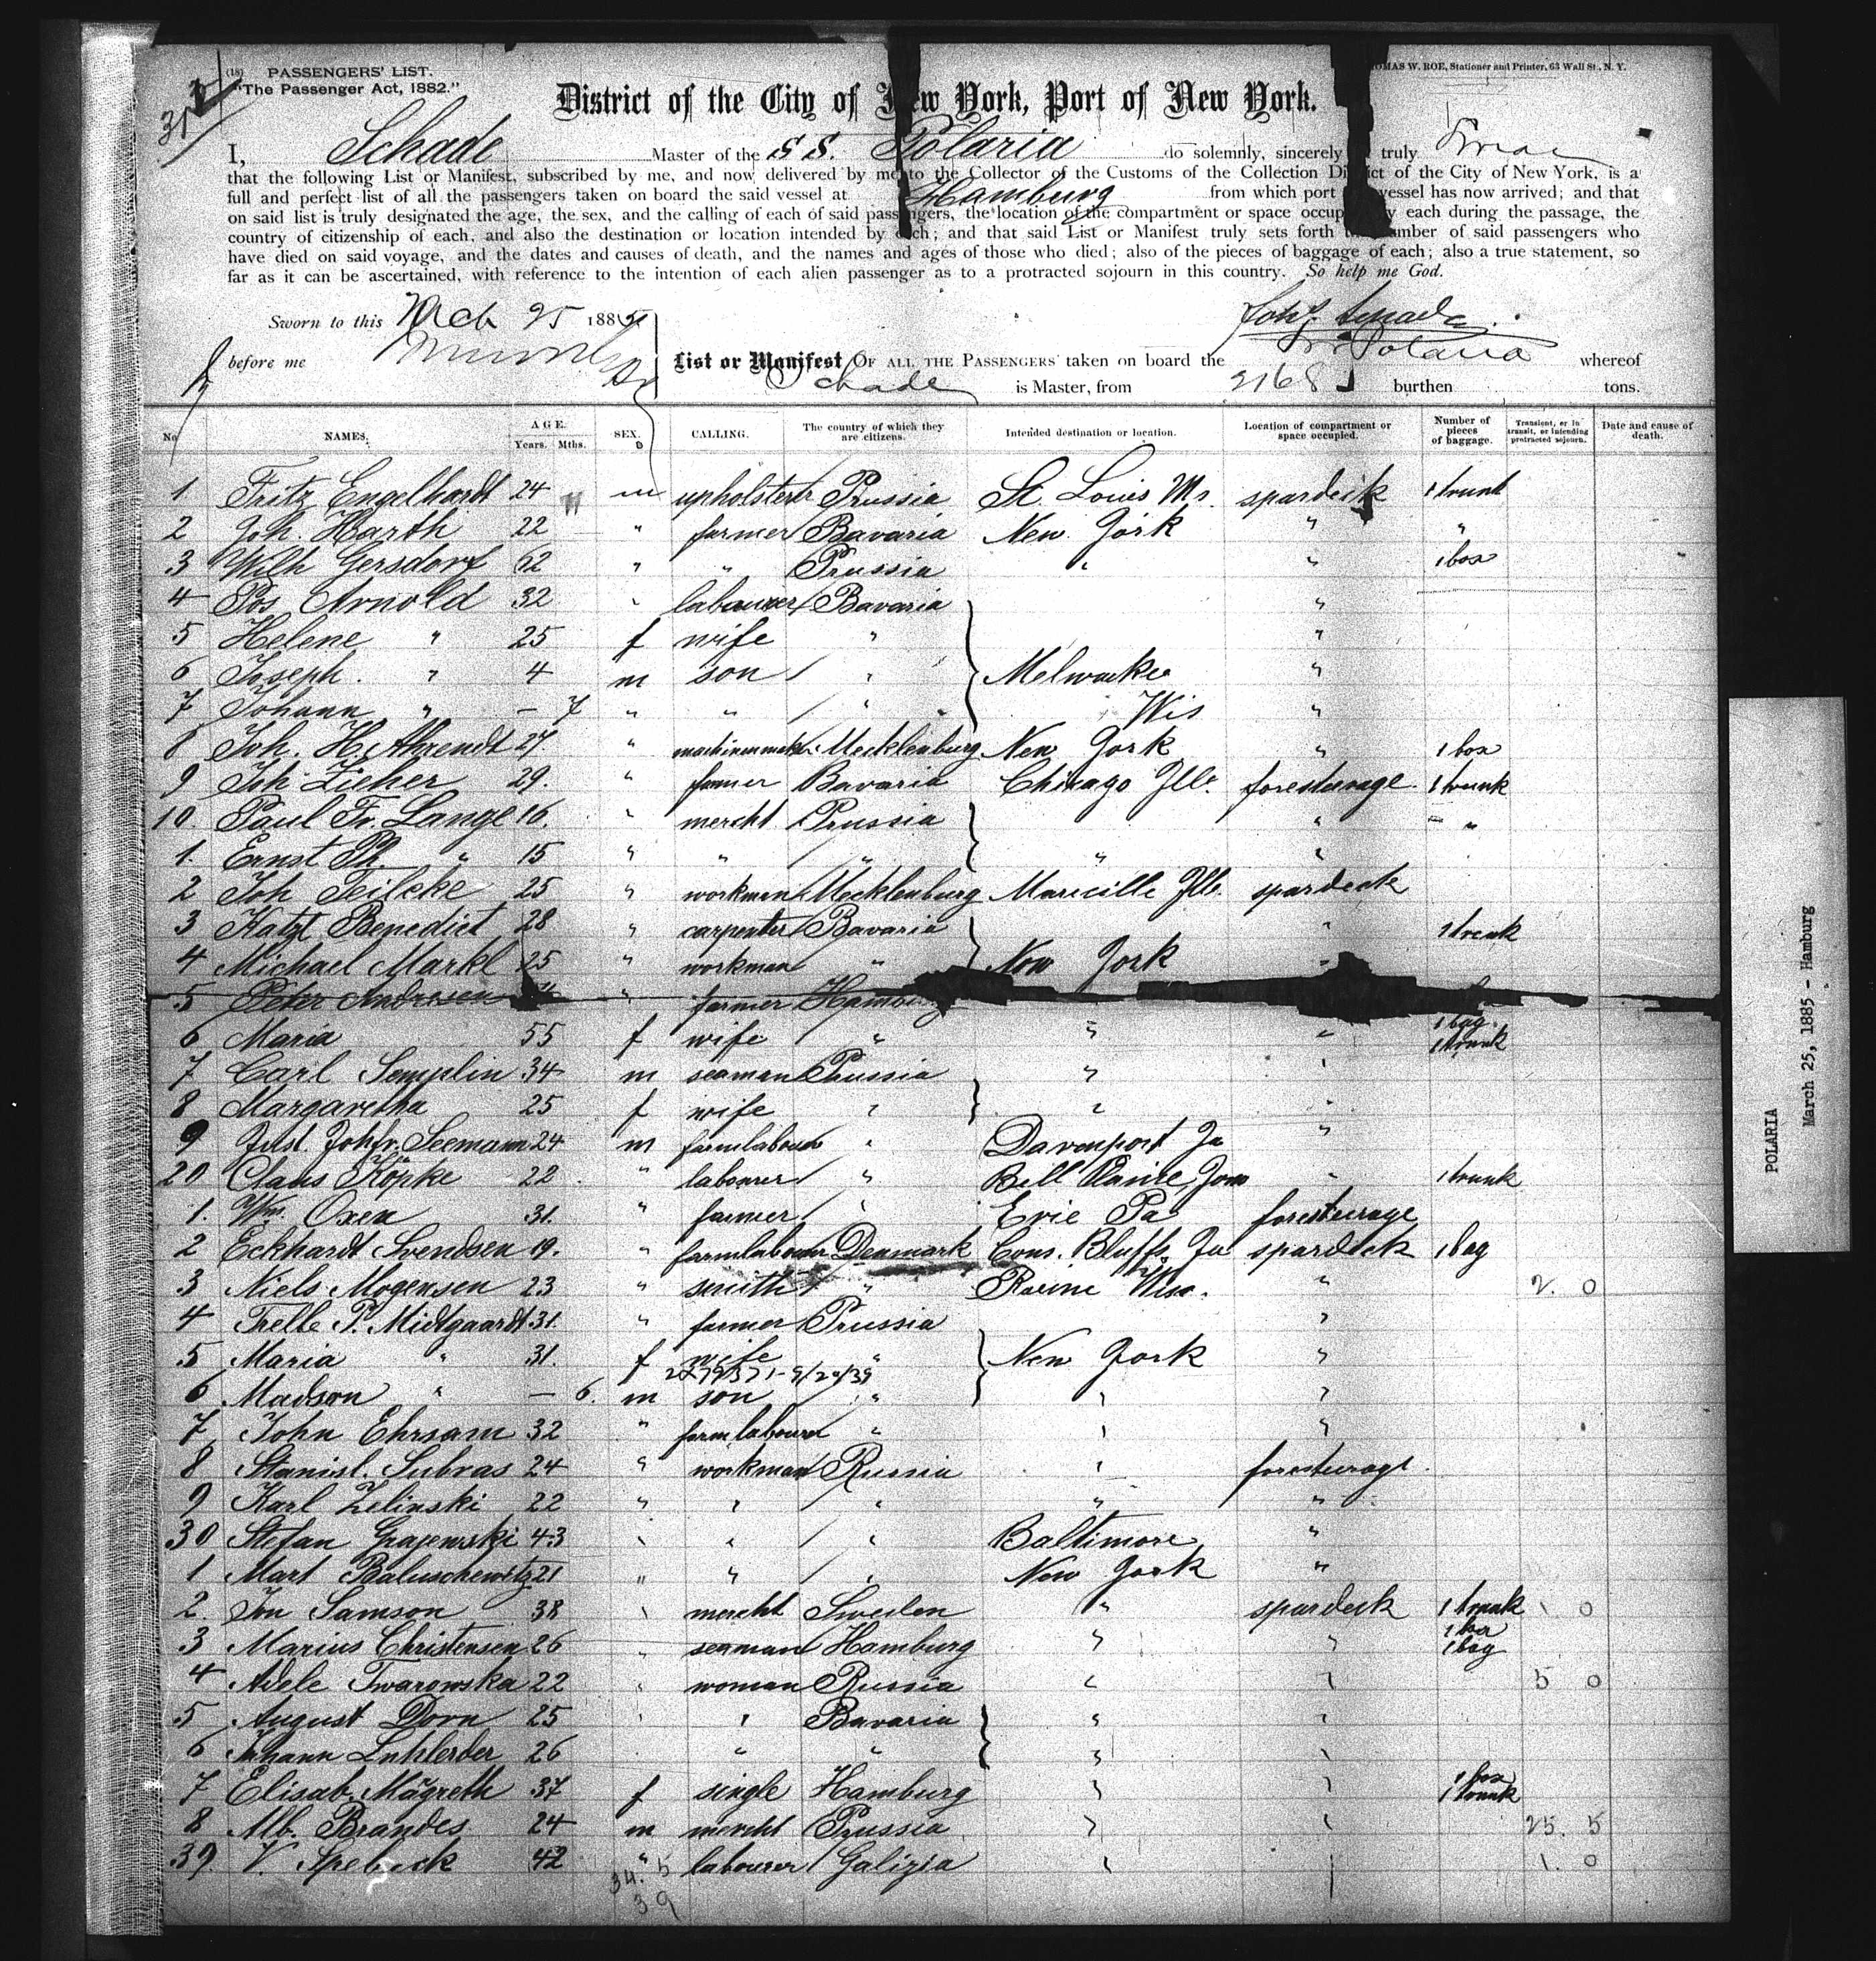 (18) PASSENGERS' LIST.
"The Passenger Act, 1882."
THOMAS W. ROE, Stationer and Printer, 63 Wall St., N. Y.
District of the City of New York, Port of New York.
I, Schade Master of the S S. Polaria do solemnly, sincerely truly
that the following List or Manifest, subscribed by me, and now delivered by me to the Collector of the Customs of the Collection District of the City of New York, is a
full and perfect list of all the passengers taken on board the said vessel at Hamburg from which port vessel has now arrived; and that
on said list is truly designated the age, the sex, and the calling of each of said passengers, the location of the compartment or space occupied by each during the passage, the
country of citizenship of each, and also the destination or location intended by each; and that said List or Manifest truly sets forth the number of said passengers who
have died on said voyage, and the dates and causes of death, and the names and ages of those who died; also of the pieces of baggage of each; also a true statement, so
far as it can be ascertained, with reference to the intention of each alien passenger as to a protracted sojourn in this country. So help me God.
Sworn to this Mch 25 1885
before me
List or Manifest OF ALL THE PASSENGERS taken on board the SS Polaria whereof
Schade is Master, from 2168 burthen tons.
No. NAMES. AGE. Years. Mths. SEX. CALLING. The country of which they are citizens. Intended destination or location. Location of compartment or space occupied. Number of pieces of baggage. Transient, or in transit, or intending protracted sojourn. Date and cause of death.
1 Fritz Engelhardt 24 m upholsterer Prussia St. Louis Mo. spardeck 1 trunk
2 Joh. Harth 22 " farmer Bavaria New York " "
3 Wilh Gersdorf 62 " " Prussia " " 1 box
4 Jos Arnold 32 " labourer Bavaria "
5 Helene " 25 f wife " "
6 Joseph " 4 m son " Melwaukee "
7 Johann " – 7 " " " Wis "
8 Joh. H. Ahrendt 27 " Mecklenburg New York " 1 box
9 Joh Zieher 29. " farmer Bavaria Chicago Ill. foresteerage 1 trunk
10. Paul Fr. Lange 16. " mercht Prussia " "
1. Ernst Ph. " 15 " " " " "
2 Joh Teilcke 25 " workman Mecklenburg Ill. spardeck
3 Benedict 28 " carpenter Bavaria " 1 trunk
4 Michael Markl 25 " workman " New York "
5 Peter Andresen " farmer Hamburg
6 Maria 55 f wife " " " 1 bag 1 trunk
7 Carl Semplin 34 m seaman Prussia " "
8 Margaretha 25 f wife " " "
9 Just. Johfr. Seemann 24 m farmlabourer " Davenport Ja "
20 Claus Köpke 22 " labourer " " 1 trunk
1. Wm. Oxen 31. " farmer " Erie Pa foresteerage
2 Eckhardt Svendsen 19. " farmlabourer Denmark Couns. Bluffs Ja spardeck 1 bag
3 Niels Mogensen 23 " smith " " 2. 0
4 P. Midtgaardt 31. " farmer Prussia "
5 Maria " 31. f wife " New York "
2x79371-9/20/39
6 Madson " – 6. m son " " "
7 John Ehrsam 32 " farmlabourer " " "
8 Stanisl. Subras 24 " workman Russia " foresteerage
9 Karl Zelinski 22 " " " " "
30 Stefan Grajewski 43 " " " Baltimore "
1 Mart Baluschewitz 21 " " " New York "
2. Jon Samson 38 " mercht Sweden " spardeck 1 trunk 1 0
3 Marius Christensen 26 " seaman Hamburg " " 1 box 1 bag
4 Adele Twarowska 22 " woman Russia " " 5 0
5 August Dorn 25 " " Bavaria " "
6 Johann 26 " " " "
7 Elisab. Mägreth 37 f single Hamburg " " 1 box 1 trunk
8 Alb. Brandes 24 m mercht Prussia " " 25. 5
39. V. 42 " labourer Galizia " 1. 0
34. 5
39
POLARIA
March 25, 1885 - Hamburg